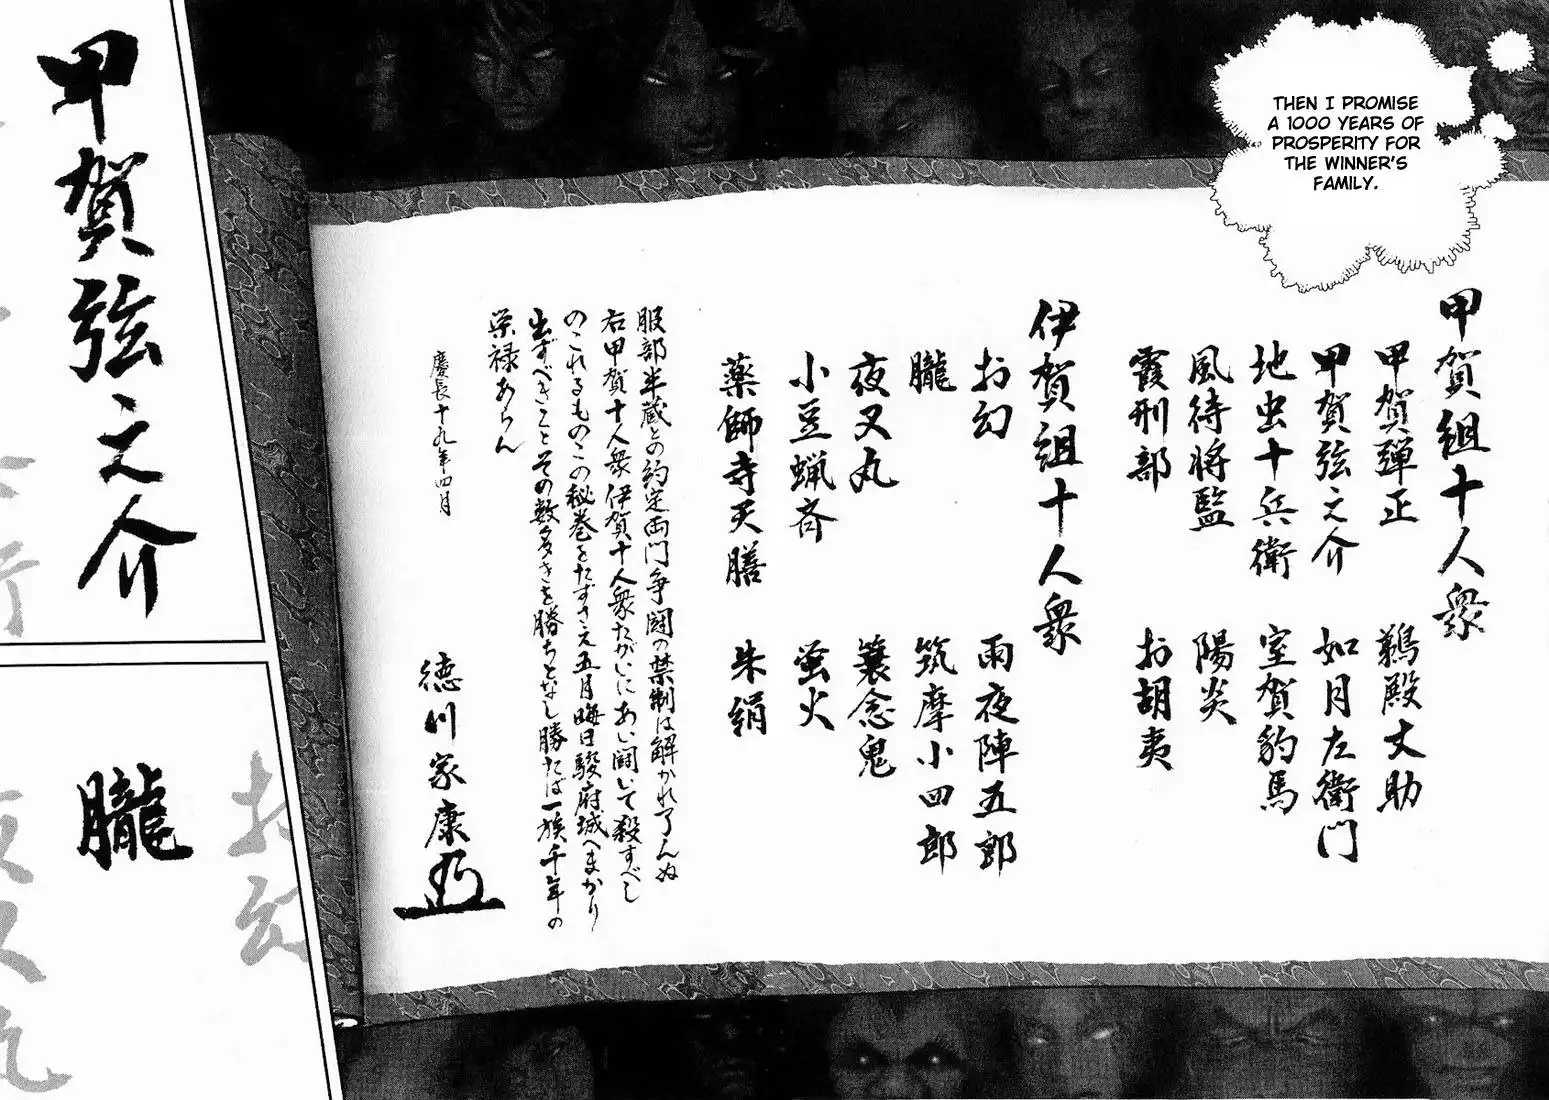 THEN I PROMISE
A 1000 YEARS OF
PROSPERITY FOR
THE WINNER'S
FAMILY.
甲賀組十人衆
甲賀弾正
鵜殿丈助
甲賀弦之介
如月左衛門
地虫十兵衛
室賀豹馬
風待将監
陽炎
霞刑部
お胡夷
伊賀組十人衆
お幻
雨夜陣五郎
朧
筑摩小四郎
夜叉丸
蓑念鬼
小豆蝋斉
蛍火
薬師寺天膳
朱絹
服部半蔵との約定両門争闘の禁制は解かれ了んぬ
右甲賀十人衆伊賀十人衆たがいにあい闘いて殺すべし
のこれるものこの秘巻をたずさえ五月晦日駿府城へまかり
出ずべきことその数多きを勝ちとなし勝たば一族千年の
栄禄あらん
慶長十九年四月
徳川家康
甲賀弦之介
朧
お幻